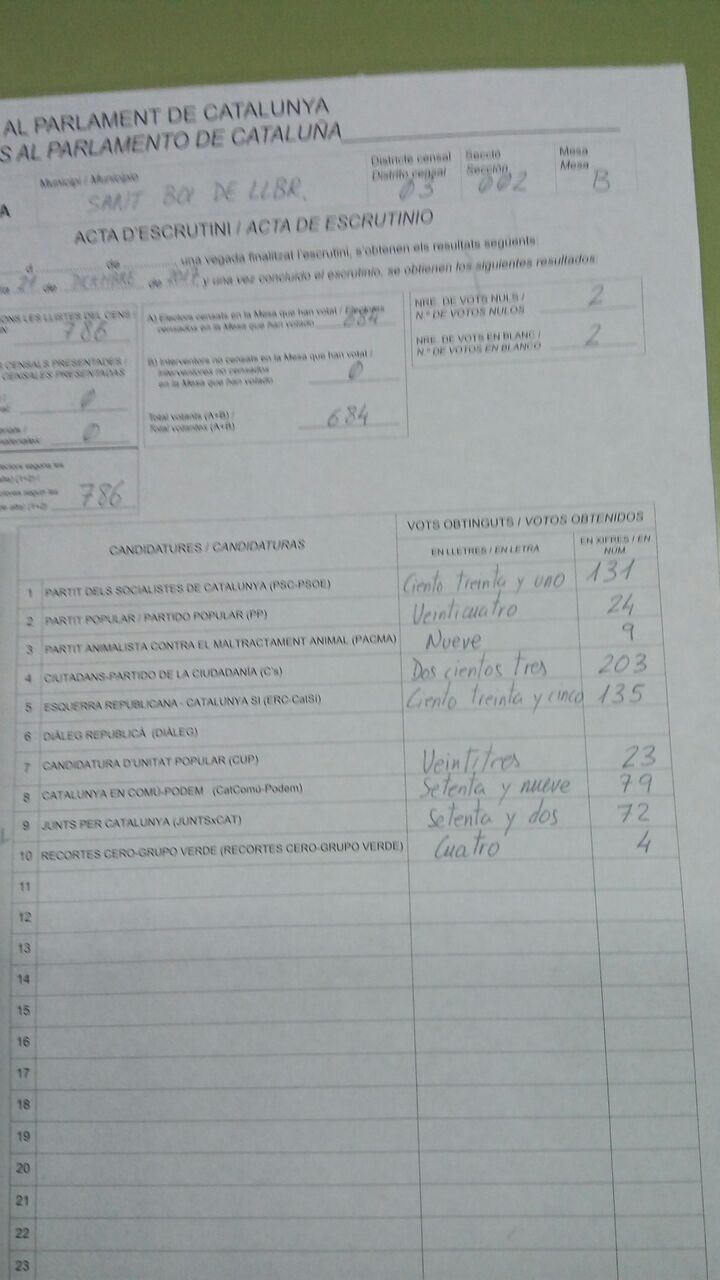 AL PARLAMENT DE CATALUNYA
S AL PARLAMENTO DE CATALUÑA
Municipi / Municipio
SANT BOI DE LLBR.
Districte censal
Distrito censal
03
Secció
Sección
002
Mesa
Mesa
B
A
ACTA D'ESCRUTINI / ACTA DE ESCRUTINIO
d de , una vegada finalitzat l'escrutini, s'obtenen els resultats següents:
21 de DICIEMBRE de 2017 y una vez concluido el escrutinio, se obtienen los siguientes resultados:
ONS LES LLISTES DEL CENS /
786
CENSALS PRESENTADES /
CENSALES PRESENTADAS
0
0
786
A) Electors censats en la Mesa que han votat / Electores
censados en la Mesa que han votado 684
B) Interventors no censats en la Mesa que han votat /
Interventores no censados
en la Mesa que han votado 0
Total votants (A+B) /
Total votantes (A+B) 684
NRE. DE VOTS NULS /
N.º DE VOTOS NULOS 2
NRE. DE VOTS EN BLANC /
N.º DE VOTOS EN BLANCO 2
CANDIDATURES / CANDIDATURAS
VOTS OBTINGUTS / VOTOS OBTENIDOS
EN LLETRES / EN LETRA
EN XIFRES / EN NUM
1 PARTIT DELS SOCIALISTES DE CATALUNYA (PSC-PSOE) Ciento treinta y uno 131
2 PARTIT POPULAR / PARTIDO POPULAR (PP) Veinticuatro 24
3 PARTIT ANIMALISTA CONTRA EL MALTRACTAMENT ANIMAL (PACMA) Nueve 9
4 CIUTADANS-PARTIDO DE LA CIUDADANÍA (C's) Dos cientos tres 203
5 ESQUERRA REPUBLICANA - CATALUNYA SI (ERC-CatSí) Ciento treinta y cinco 135
6 DIÀLEG REPUBLICÀ (DIÀLEG)
7 CANDIDATURA D'UNITAT POPULAR (CUP) Veintitres 23
8 CATALUNYA EN COMÚ-PODEM (CatComú-Podem) Setenta y nueve 79
9 JUNTS PER CATALUNYA (JUNTSxCAT) Setenta y dos 72
10 RECORTES CERO-GRUPO VERDE (RECORTES CERO-GRUPO VERDE) Cuatro 4
11
12
13
14
15
16
17
18
19
20
21
22
23